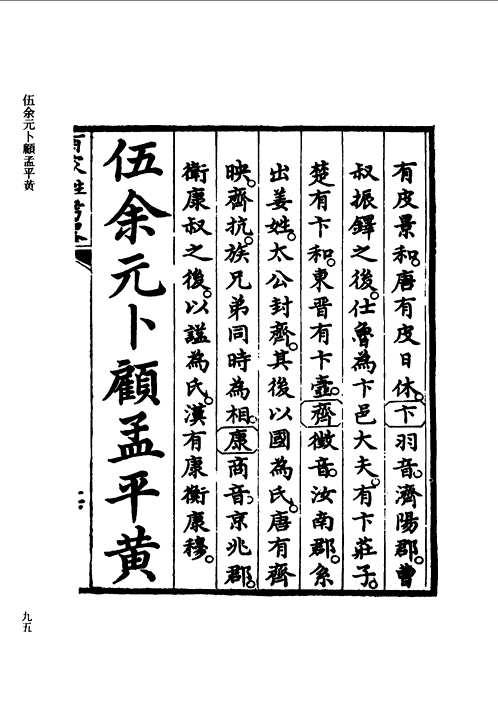 有皮景和。唐有皮日休。卞羽音。濟陽郡。曹
叔振鐸之後。仕魯為卞邑大夫。有卞莊子。
楚有卞和。東晋有卞壼。齊徵音。汝南郡。系
出姜姓。太公封齊。其後以國為氏。唐有齊
映。齊抗。族兄弟同時為相。康商音。京兆郡。
衛康叔之後。以謚為氏。漢有康衡康穆。
伍余元卜顧孟平黃
伍余元卜顧孟平黃
九五